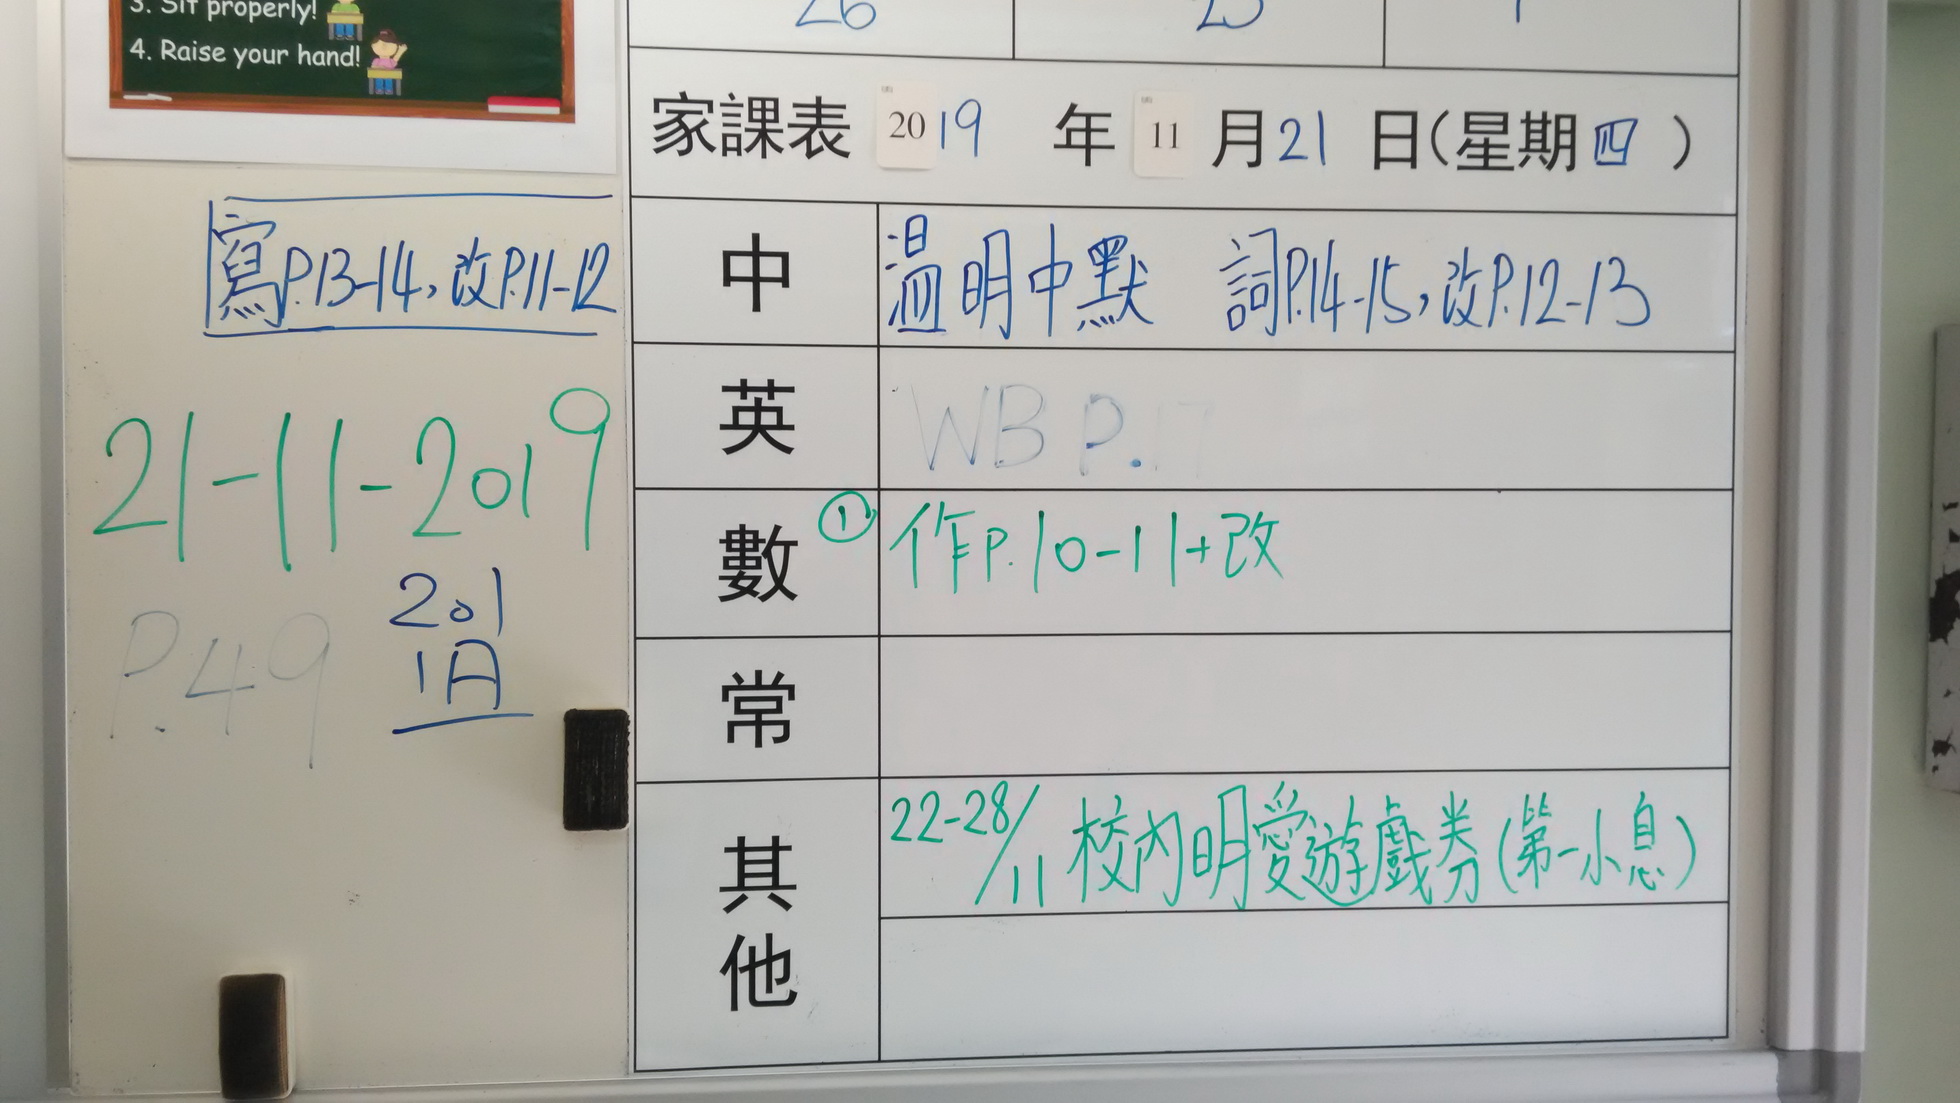 3. Sit properly!
4. Raise your hand!
26 25
家課表 2019 年 11 月 21 日(星期四)
寫P.13-14,改P.11-12
中 溫明中默 詞P.14-15,改P.12-13
21-11-2019
英 WB P.17
數 ① 作P.10-11+改
201
1A
P.49
常
其他 22-28/11 校內明愛遊戲券(第一小息)